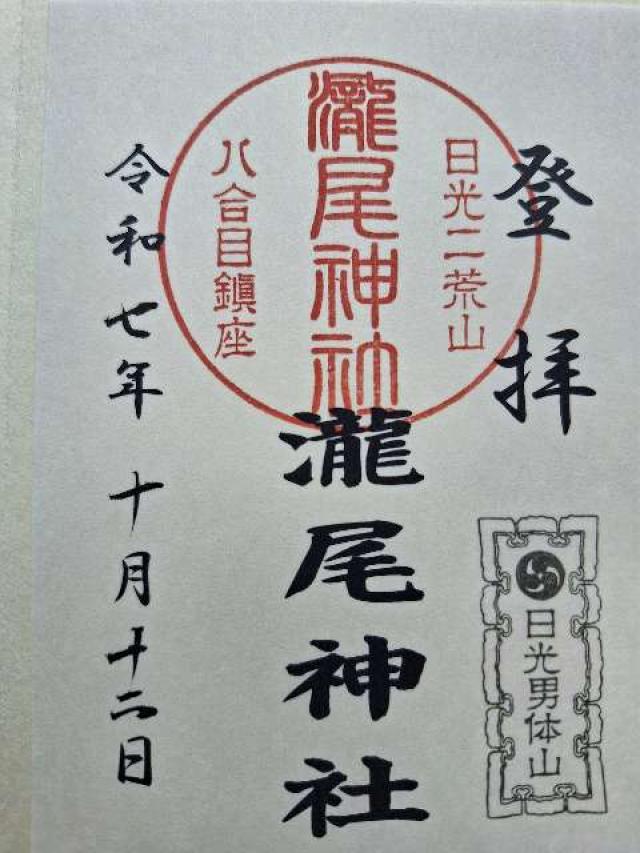 登拝
日光二荒山
瀧尾神社
八合目鎮座
瀧尾神社
日光男体山
令和七年十月十二日